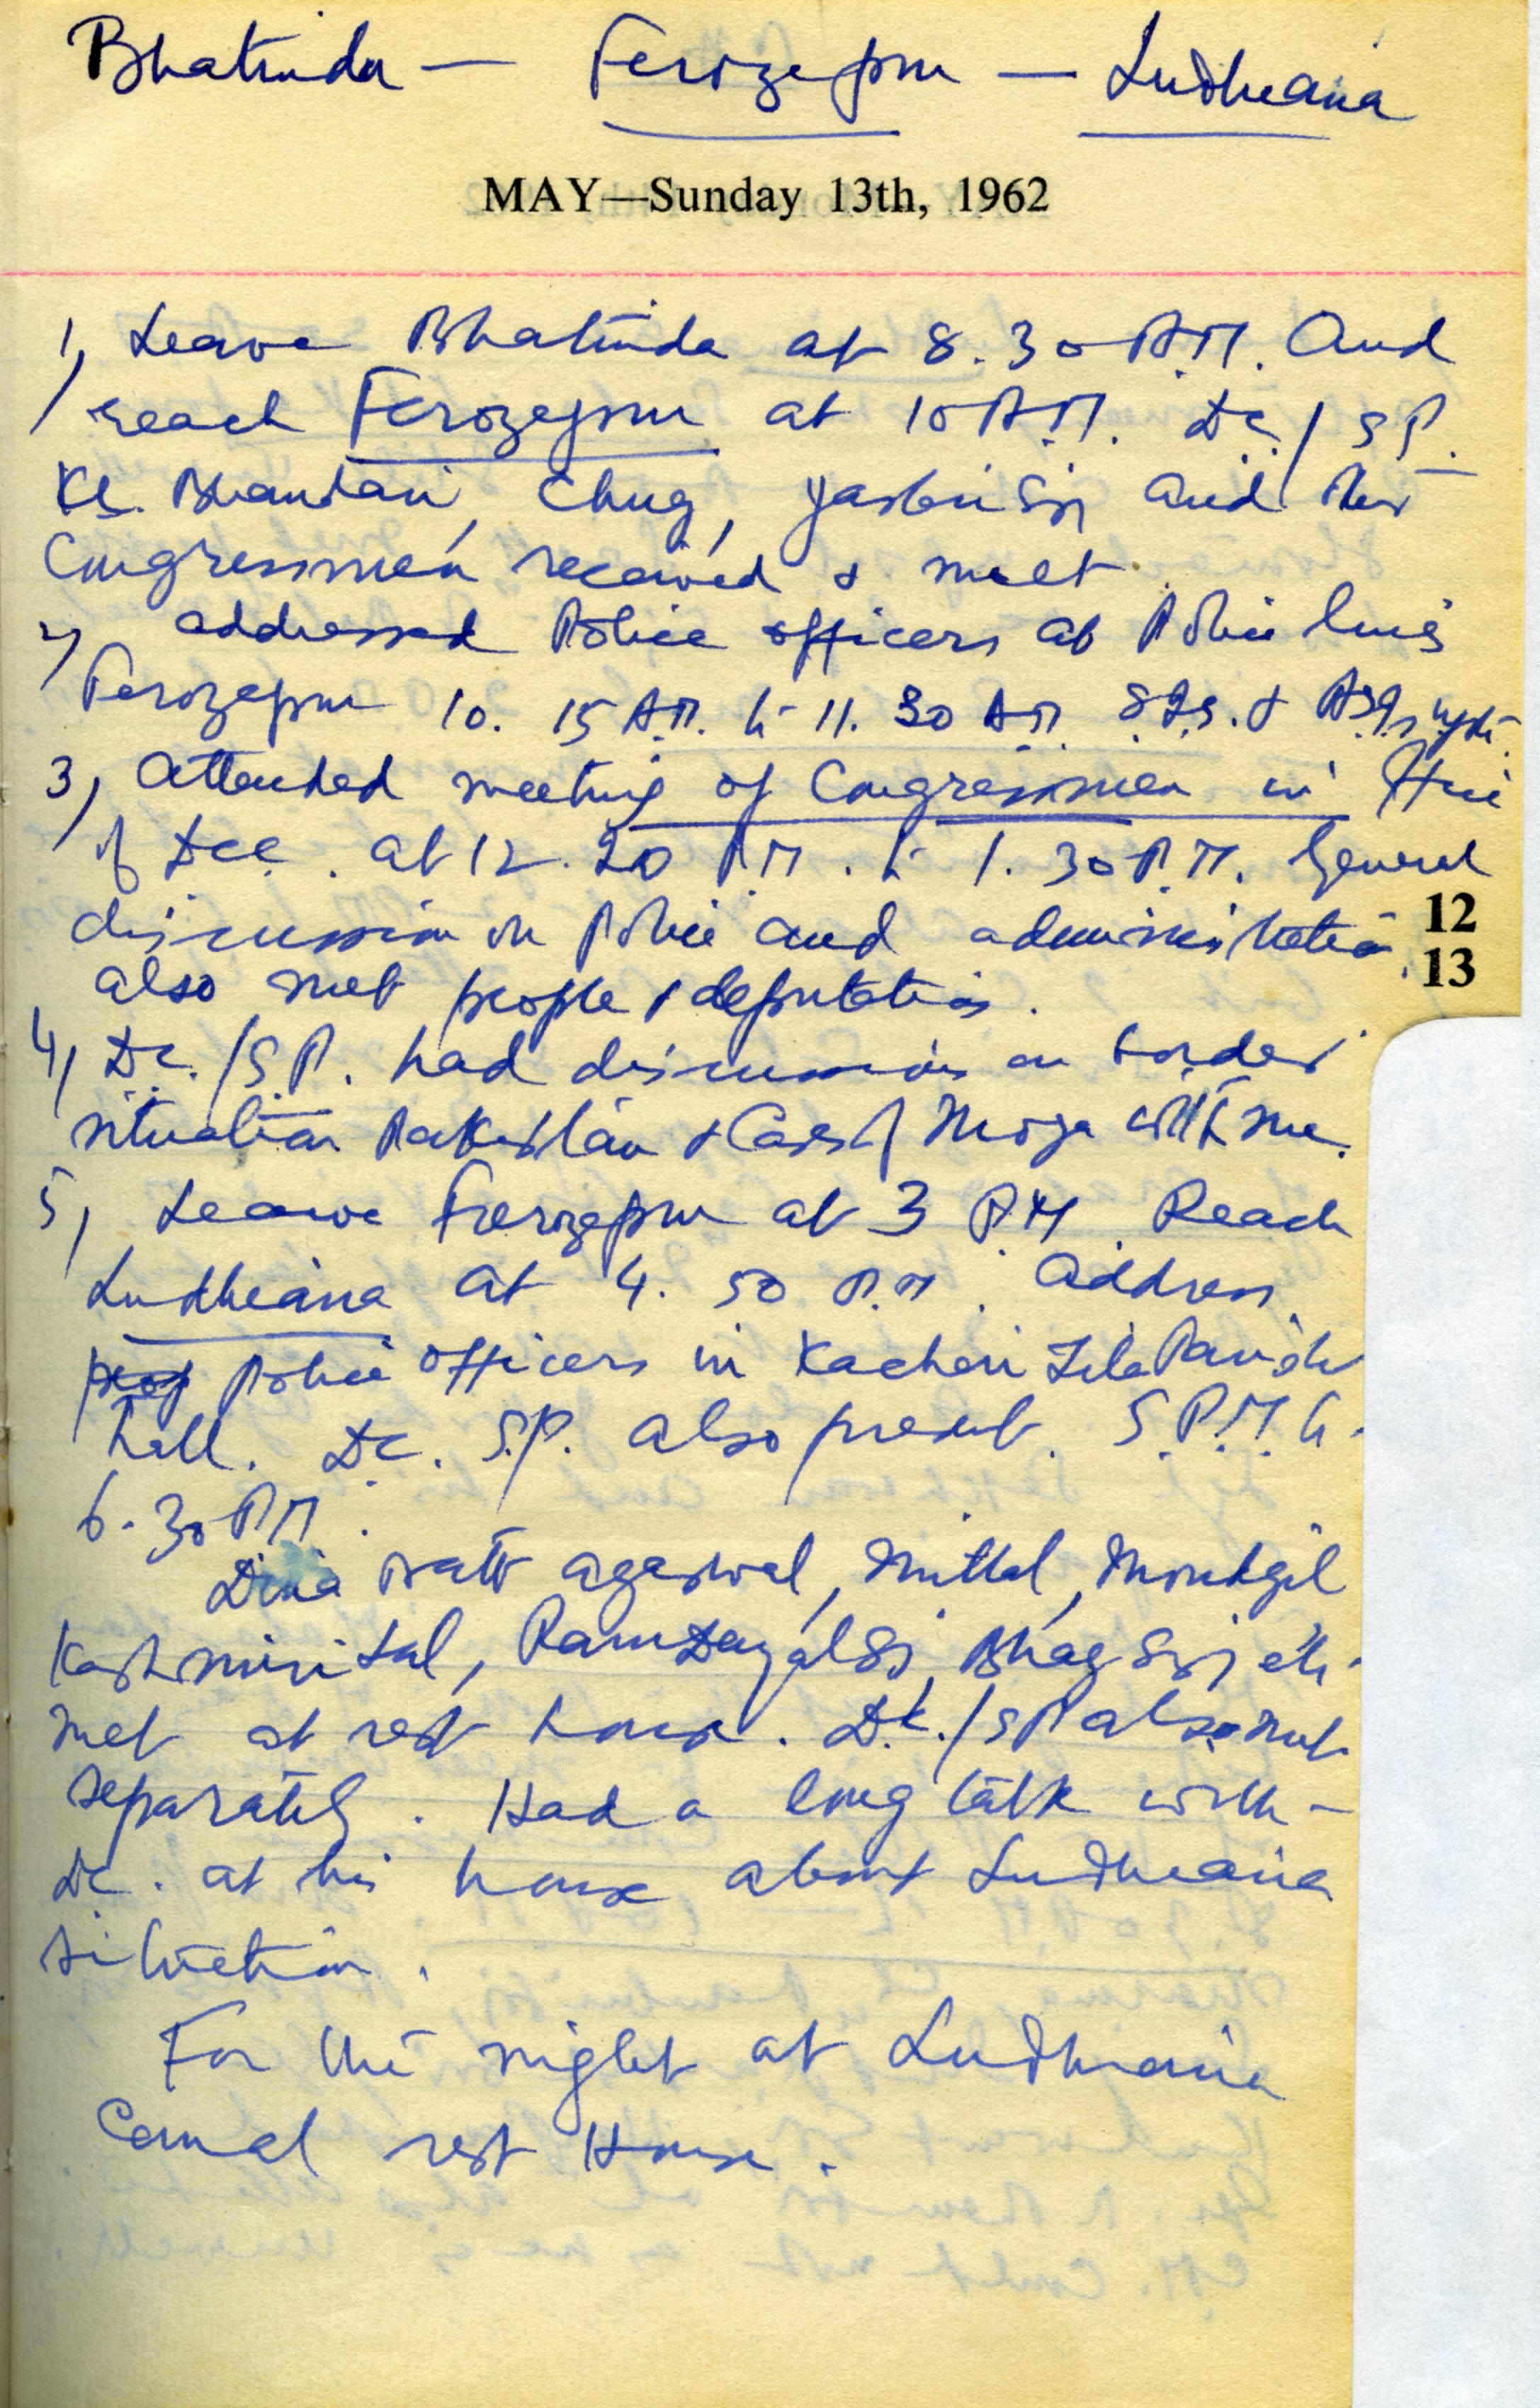 Bhatinda — Ferozepur — Ludheana
MAY—Sunday 13th, 1962
1, Leave Bhatinda at 8.30 A.M. And
reach Ferozepur at 10 A.M. D.C./S.P.
Bhandari, Chug, and
Congressmen received & meet.
2, addressed Police officers at Police lines
Ferozepur 10.15 A.M. to 11.30 A.M.
3, Attended meeting of Congressmen in
of DCC. at 12.20 P.M. to 1.30 P.M. General
discussion on Police and administration
12
13
also met people & deputations.
4, D.C./S.P. had discussions on border
situation Pakistan & Case of Moga with me.
5, Leave Ferozepur at 3 P.M. Reach
Ludheana at 4.50 P.M. Address
Police officers in Kacheri Zila Parishd
hall. D.C. S.P. also present. 5 P.M. to
6.30 P.M.
Dina Datt Agarwal, Mittal, Moudgil
Kashmiri Lal, Ram Dayal Sj, Bhag Sj etc.
met at rest house. D.C./SP also met
separately. Had a long talk with
D.C. at his house about Ludheana
situation.
For the night at Ludheana
Canal rest House.